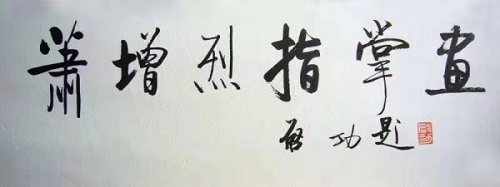 萧增烈指掌画
启功题